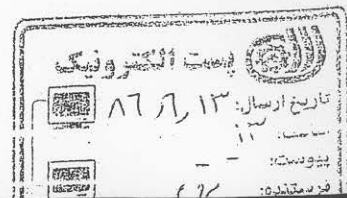 پست الکترونیک
تاریخ ارسال: ۸۶/۶/۱۳
ساعت: ۱۳
پیوست: –
فرستنده: